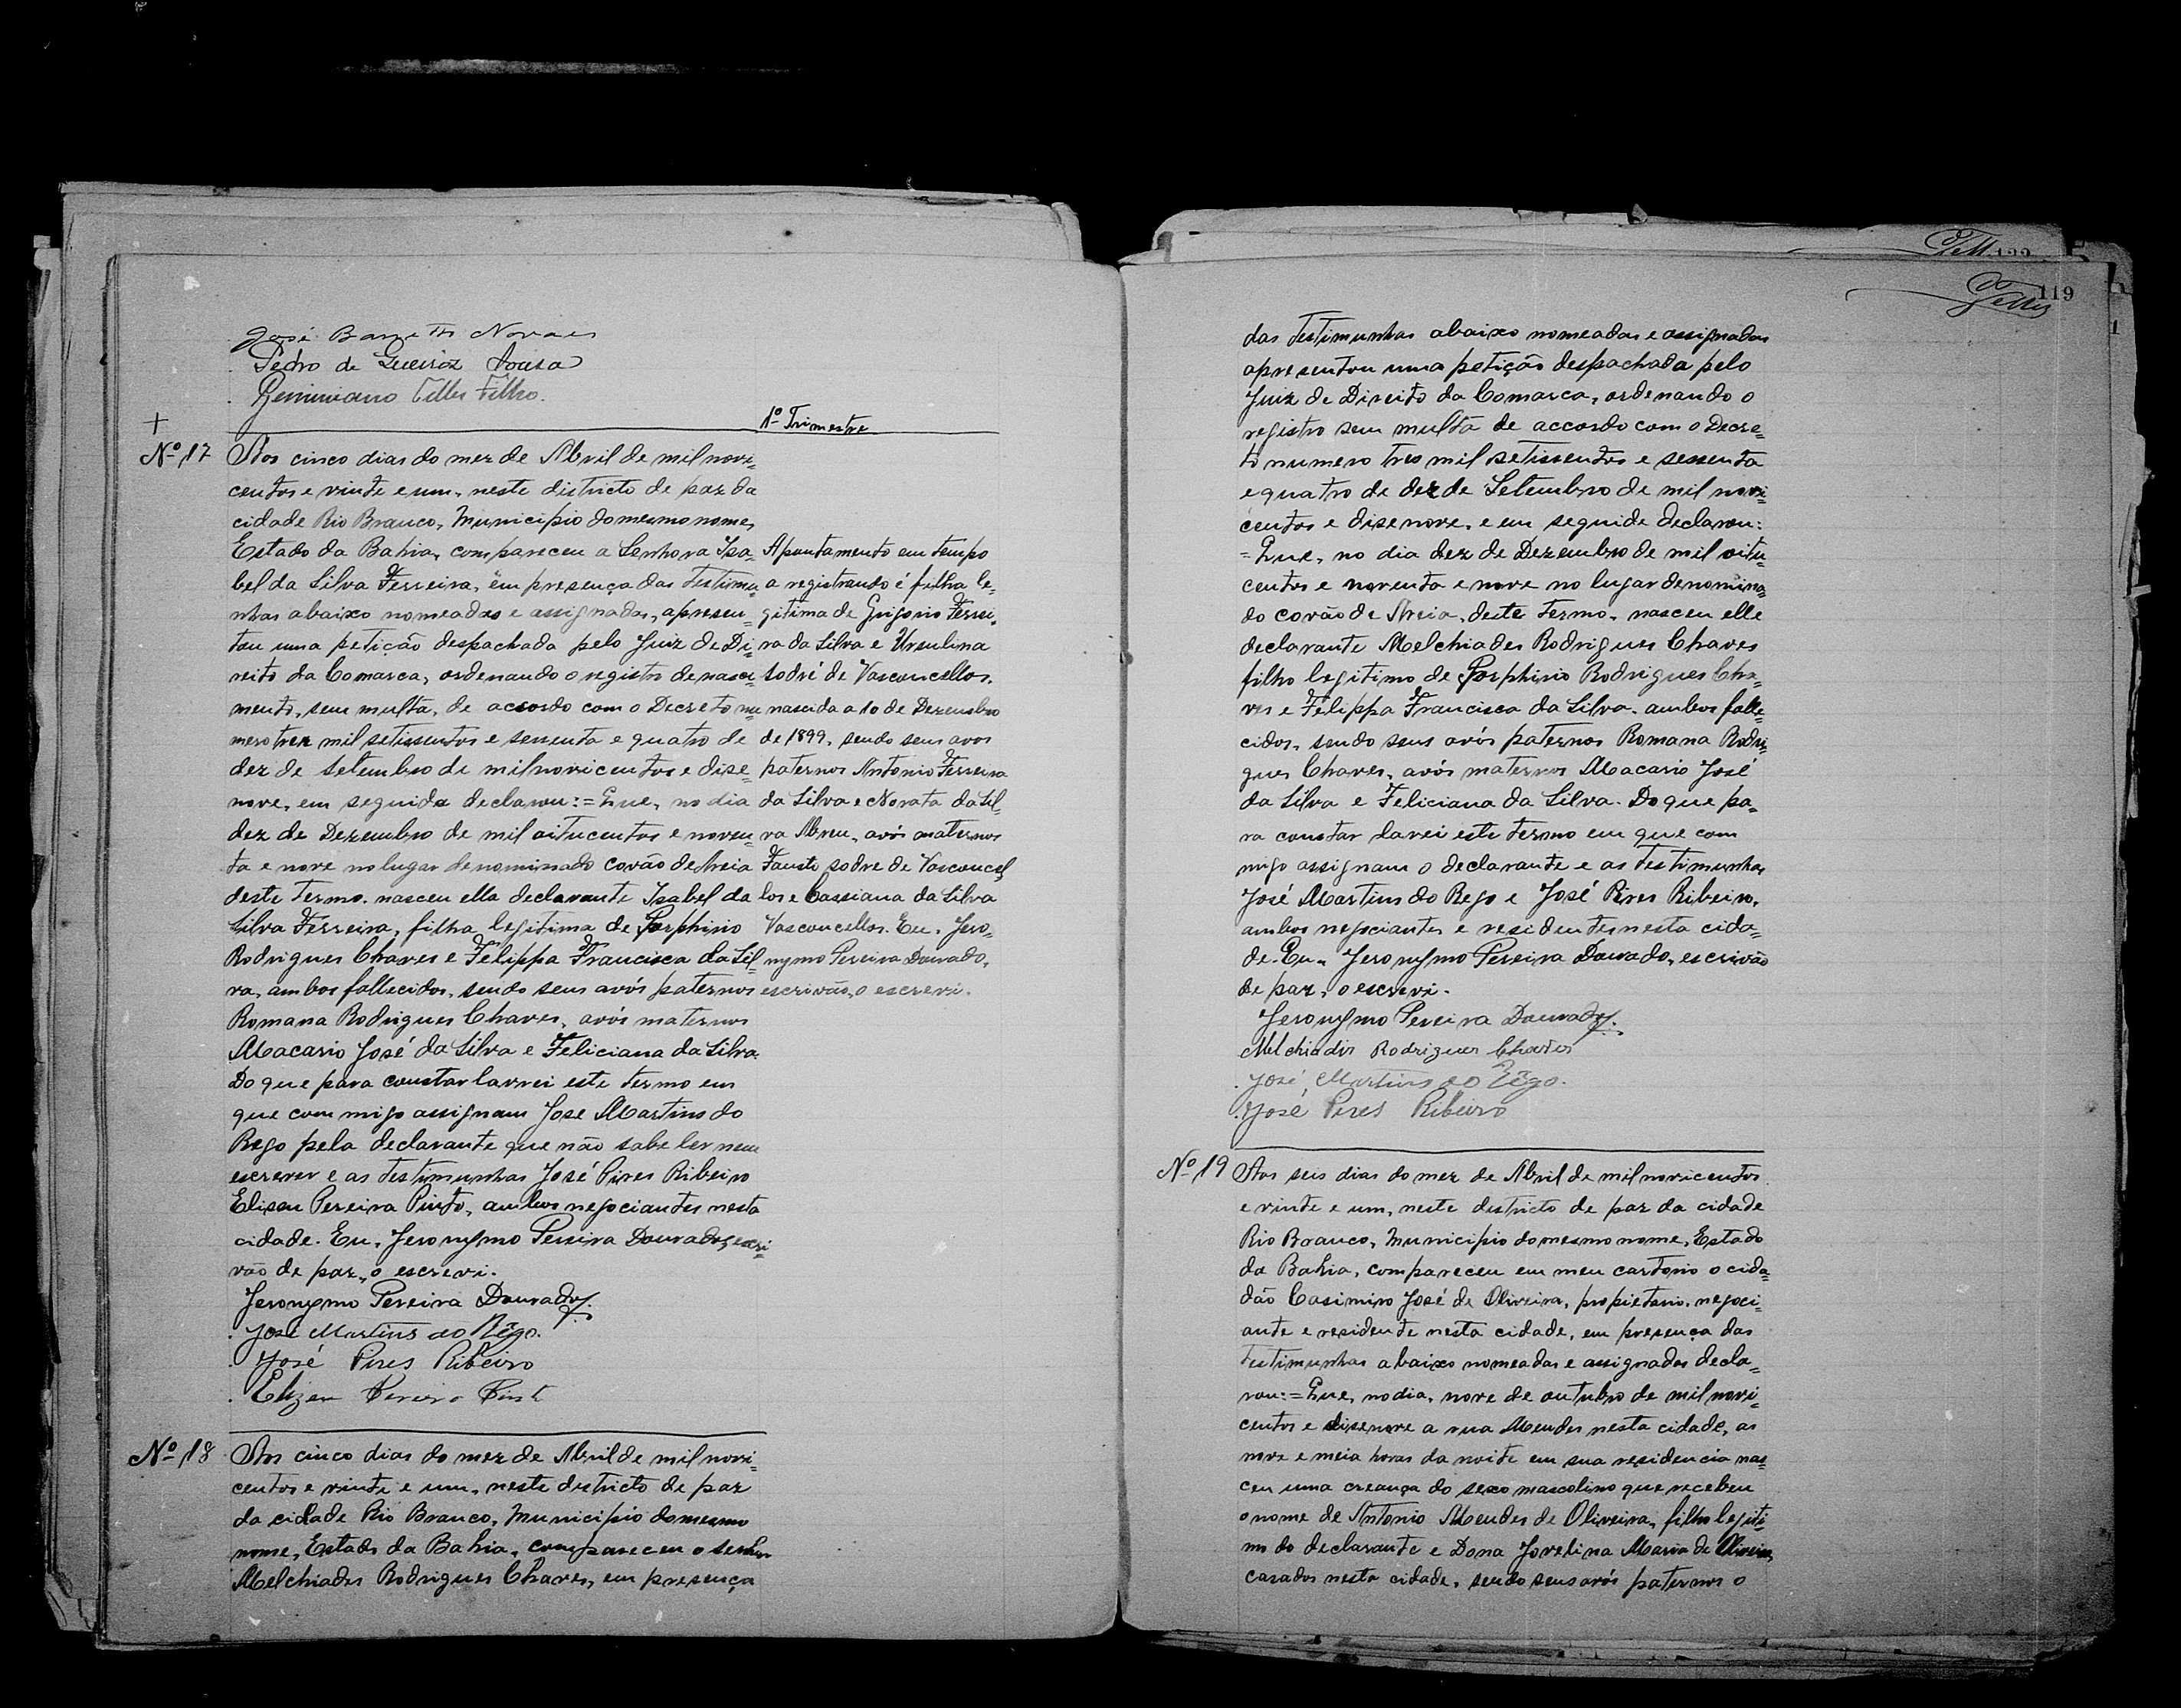 José Barretto Novaes
Pedro de Queiroz Sousa
Geminiano Telles Filho.
1º Trimestre
Nº 17
Aos cinco dias do mez de Abril de mil novi=
centos e vinte e um, neste districto de paz da
cidade Rio Branco, Municipio do mesmo nome,
Estado da Bahia, compareceu a Senhora Isa=
bel da Silva Ferreira, em presença das testimu=
nhas abaixo nomeadas e assignadas, apresen=
tou uma petição despachada pelo Juiz de Di=
reito da Comarca, ordenando o registro de nasci=
mento, sem multa, de accordo com o Decreto nu=
mero trez mil setissentos e sessenta e quatro de
dez de setembro de mil novicentos e dise=
nove, em seguida declarou: = Que, no dia
dez de Dezembro de mil oitucentos e noven=
ta e nove no lugar denominado covão de Areia
deste termo, nasceu ella declarante Isabel da
Silva Ferreira, filha legitima de Porphirio
Rodrigues Chaves e Felippa Francisca da Sil=
va, ambos fallecidos, sendo seus avós paternos
Romana Rodrigues Chaves, avós maternos
Macario José da Silva e Feliciana da Silva.
Do que para constar lavrei este termo em
que commigo assignam José Martins do
Rego pela declarante que não sabe ler nem
escrever e as testimunhas José Pires Ribeiro
Eliseu Pereira Pinto, ambos negociantes nesta
cidade. Eu, Jeronymo Pereira Dourado, escri=
vão de paz, o escrevi.
Jeronymo Pereira Dourado
José Martins do Rêgo.
José Pires Ribeiro
Elizeu Pereira Pinto
Apontamento em tempo
a registrando é filha le=
gitima de Grigorio Ferrei=
ra da Silva e Ursulina
Sodré de Vasconcellos.
nascida a 10 de Dezembro
de 1899, sendo seus avos
paternos Antonio Ferreira
da Silva e Norata da Sil=
va Abreu, avós maternos
Fausto Sodre de Vasconcel=
los e Cassiana da Silva
Vasconcellos. Eu, Jero=
nymo Pereira Dourado,
escrivão, o escrevi.
Nº 18
Aos cinco dias do mez de Abril de mil novi=
centos e vinte e um, neste districto de paz
da cidade Rio Branco, Municipio do mesmo
nome, Estado da Bahia, compareceu o senhor
Melchiades Rodrigues Chaves, em presença
119
Telles
das testimunhas abaixo nomeadas e assignadas
apresentou uma petição despachada pelo
Juiz de Direito da Comarca, ordenando o
registro sem multa de accordo com o Decre=
to numero tres mil setissentos e sessenta
e quatro de dez de Setembro de mil novi=
centos e disenove, e em seguide declarou:
= Que, no dia dez de Dezembro de mil oitu=
centos e noventa e nove no lugar denomina=
do covão de Areia, deste termo, nasceu elle
declarante Melchiades Rodrigues Chaves
filho legitimo de Porphirio Rodrigues Cha=
ves e Felippa Francisca da Silva, ambos falle=
cidos, sendo seus avós paternos Romana Rodri=
gues Chaves, avós maternos Macario José
da Silva e Feliciana da Silva. Do que pa=
ra constar lavrei este termo em que com
migo assignam o declarante e as testimunhas
José Martins do Rego e José Pires Ribeiro,
ambos negociantes e residentes nesta cida=
de. Eu, Jeronymo Pereira Dourado, escrivão
de paz, o escrevi.
Jeronymo Pereira Dourado
Melchiades Rodrigues Chaves
José Martins do Rêgo.
José Pires Ribeiro
Nº 19
Aos seis dias do mez de Abril de mil novicentos
e vinte e um, neste districto de paz da cidade
Rio Branco, Municipio do mesmo nome, Estado
da Bahia, compareceu em meu cartorio o cida=
dão Casimiro José de Oliveira, propietario, negoci=
ante e residente nesta cidade, em presença das
testimunhas abaixo nomeadas e assignadas decla=
rou: = Que, no dia, nove de outubro de mil novi=
centos e disenove a rua Mendes nesta cidade, as
nove e meia horas da noite em sua residencia nas=
ceu uma creança do sexo mascolino que recebeu
o nome de Antonio Mendes de Oliveira, filho legiti=
mo do declarante e Dona Jovelina Maria de Oliveira,
casados nesta cidade, sendo seus avós paternos o